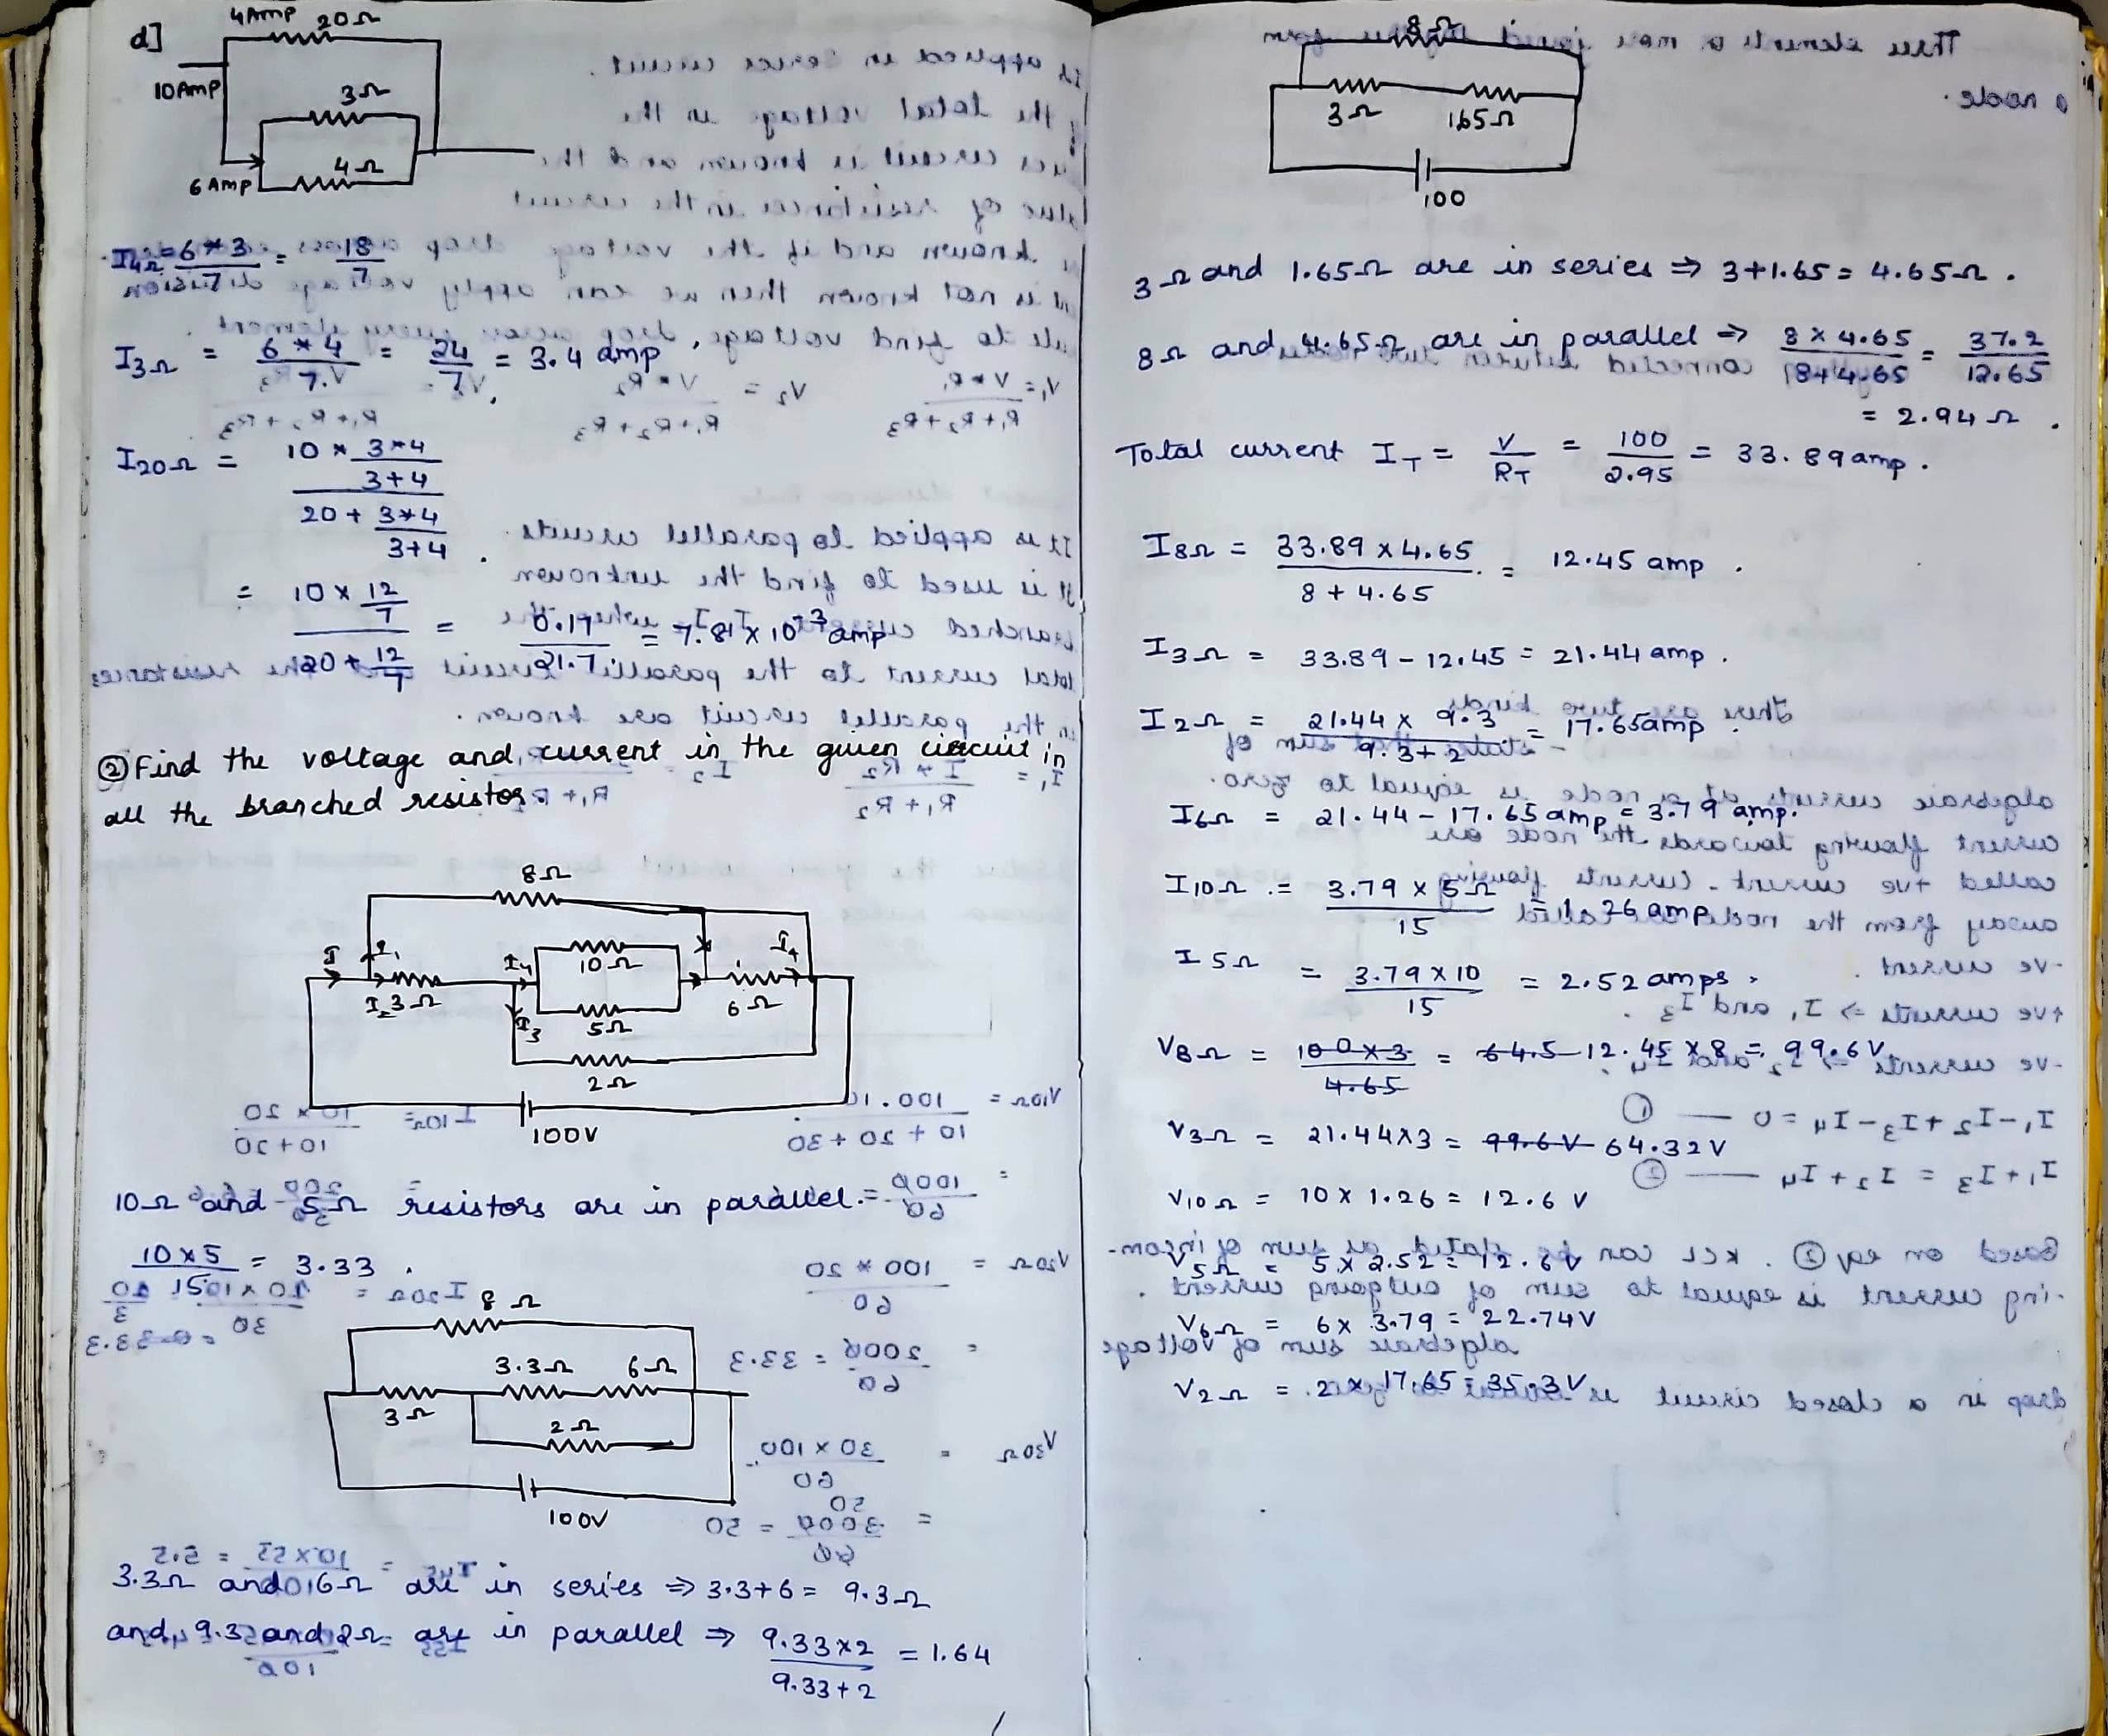 d]
4Amp 20Ω
10Amp
3Ω
4Ω
6 Amp
I4Ω = 6*3/7 = 18/7
I3Ω = 6*4/7 = 24/7 = 3.4 amp
I20Ω = (10 * 3*4/3+4) / (20 + 3*4/3+4)
= (10 x 12/7) / (20 + 12/7) = 0.17/21.7 = 7.81 x 10⁻³ amp
② Find the voltage and current in the given circuit in
all the branched resistor.
8Ω
I I1 I4 10Ω I+
I2 3Ω I3 5Ω 6Ω
2Ω
100V
10Ω and 5Ω resistors are in parallel.
10x5/15 = 3.33
8Ω
3.3Ω 6Ω
3Ω
2Ω
100V
3.3Ω and 6Ω are in series ⇒ 3.3+6 = 9.3Ω
and 9.3 and 2Ω are in parallel ⇒ 9.33x2/9.33+2 = 1.64
8Ω
3Ω 1.65Ω
100
3Ω and 1.65Ω are in series ⇒ 3+1.65 = 4.65Ω.
8Ω and 4.65Ω are in parallel ⇒ 8x4.65/8+4.65 = 37.2/12.65
= 2.94Ω.
Total current IT = V/RT = 100/2.95 = 33.89 amp.
I8Ω = 33.89 x 4.65/8 + 4.65 = 12.45 amp.
I3Ω = 33.89 - 12.45 = 21.44 amp.
I2Ω = 21.44 x 9.3/9.3+2 = 17.65amp
I6Ω = 21.44 - 17.65 amp = 3.79 amp.
I10Ω = 3.79 x 5Ω/15 = 1.26 amp
I5Ω = 3.79x10/15 = 2.52 amps,
V8Ω = 100x3/4.65 = 64.5 12.45 x 8 = 99.6 V
V3Ω = 21.44x3 = 99.6 V 64.32V
V10Ω = 10 x 1.26 = 12.6 V
V5Ω = 5 x 2.52 = 12.6 V
V6Ω = 6x 3.79 = 22.74V
V2Ω = 2 x 17.65 = 35.3 V